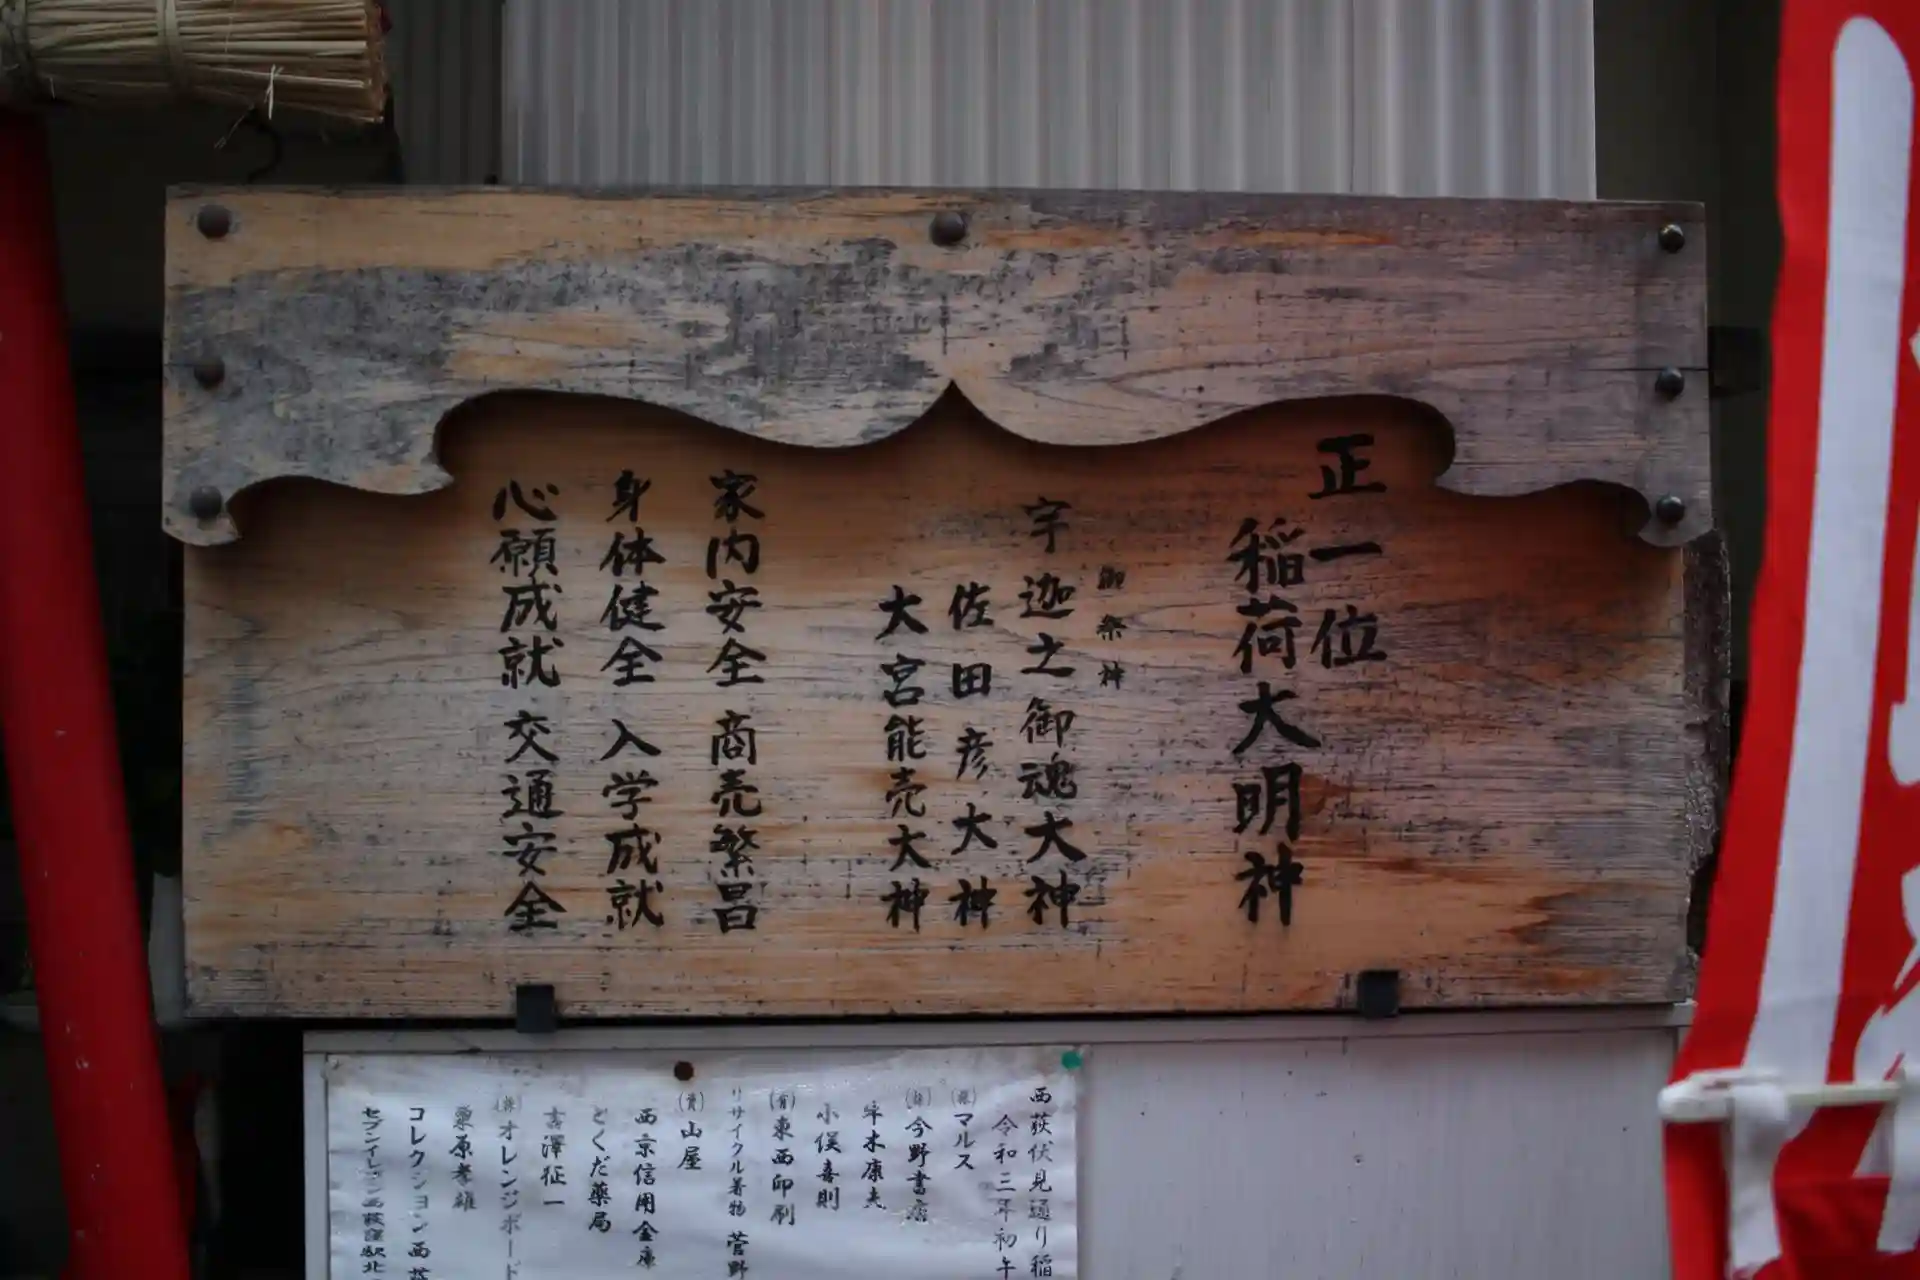 正一位
稲荷大明神
御祭神
宇迦之御魂大神
佐田彦大神
大宮能売大神
家内安全 商売繁昌
身体健全 入学成就
心願成就 交通安全
西荻伏見通り稲
令和三年初午
(株)マルス
(株)今野書店
木康夫
小俣喜則
(有)東西印刷
リサイクル着物 菅野
(資)山屋
西京信用金庫
とくだ薬局
吉澤征一
(株)オレンジボード
栗原孝雄
コレクション西荻
セブンイレブン西荻窪駅北